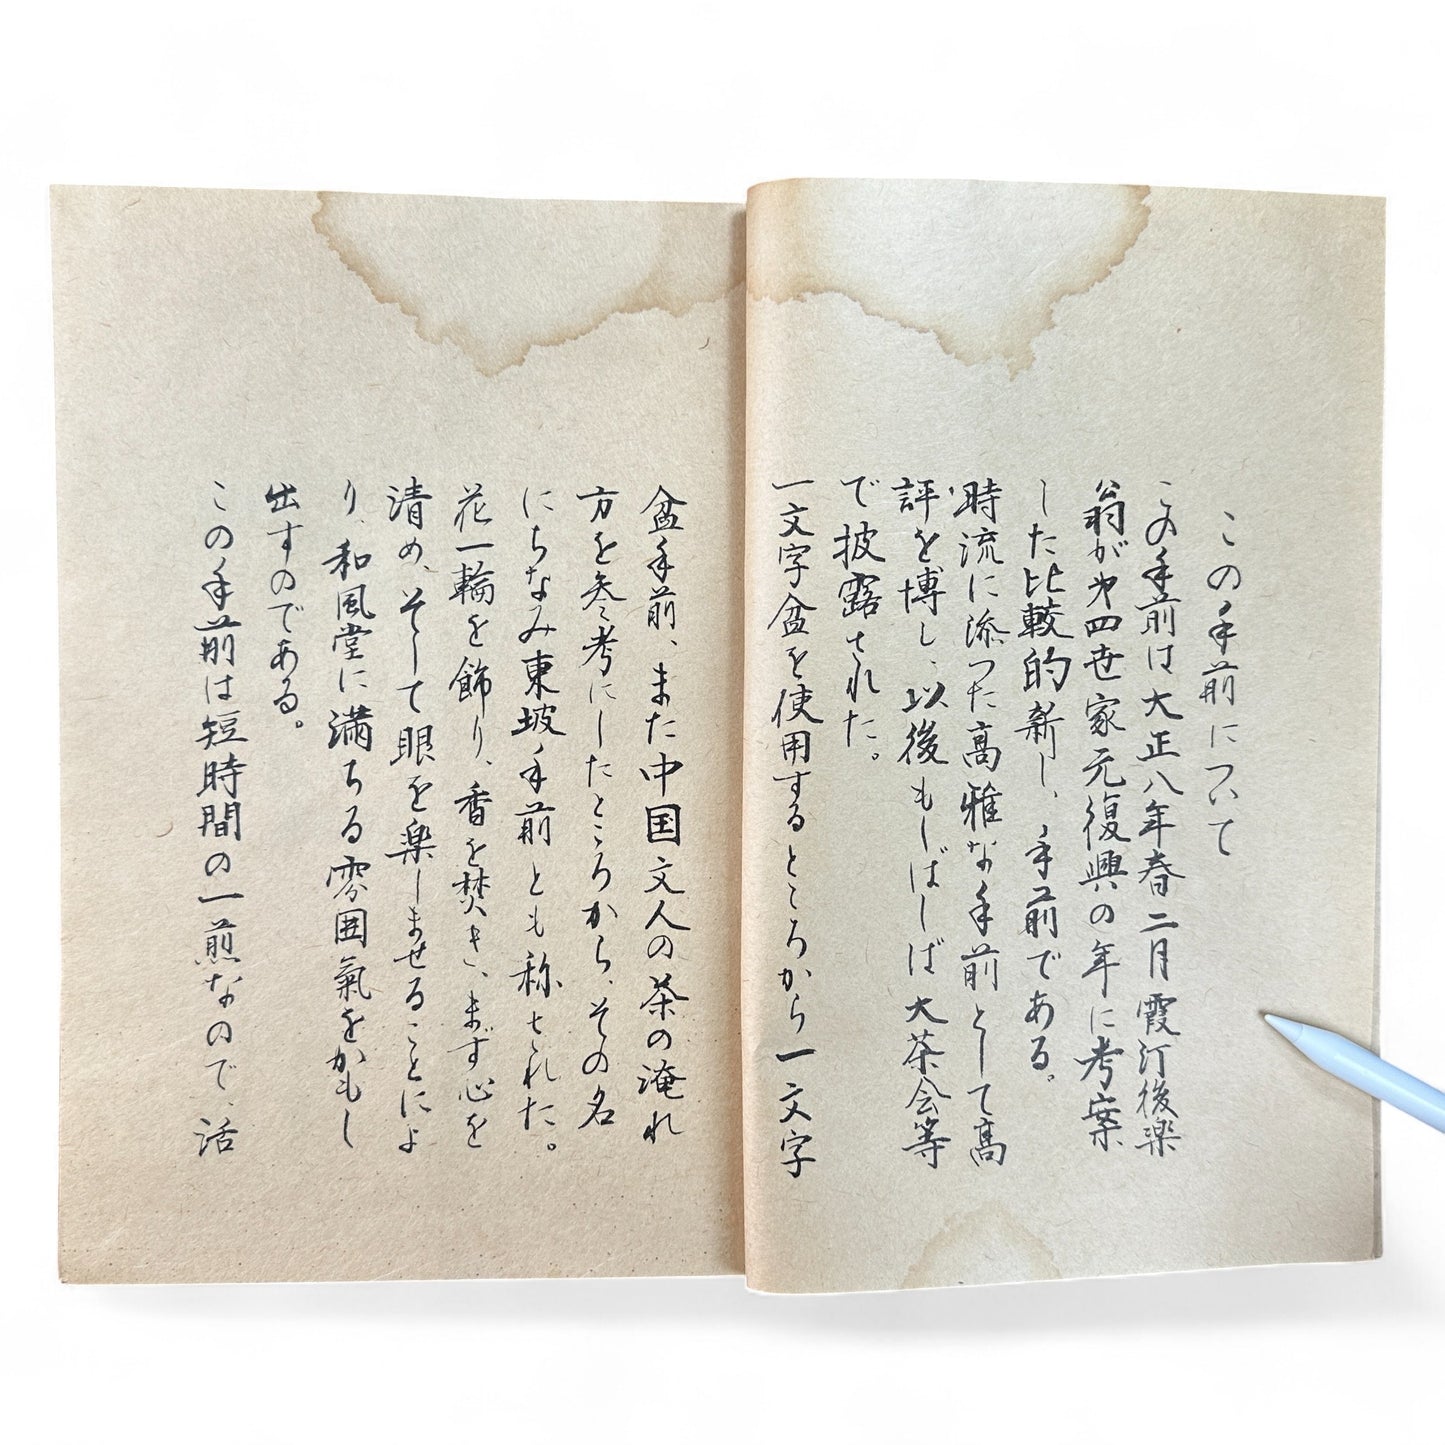 この手前について
この手前は大正八年春二月霞汀後楽
翁が㐧四世家元復興の年に考案
した比較的新しい手前である。
時流に添った高雅な手前として高
評を博し、以後もしばしば大茶会等
で披露された。
一文字盆を使用するところから一文字
盆手前、また中国文人の茶の淹れ
方を参考にしたところから、その名
にちなみ東坡手前とも称された。
花一輪を飾り、香を焚き、まず心を
清め、そして眼を楽しませることによ
り、和風堂に満ちる雰囲氣をかもし
出すのである。
この手前は短時間の一煎なので、活